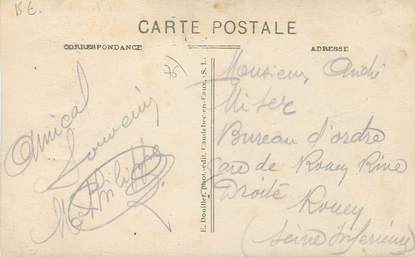 B.E.
CARTE POSTALE
CORRESPONDANCE
ADRESSE
Amical
Souvenir
M Philippe
E. Douillet, Phot.-édit. Caudebec-en-Caux. S. L.
Monsieur André
Bureau d'ordre
Gare de Rouen Rive
Droite
Rouen
(Seine Inférieure)